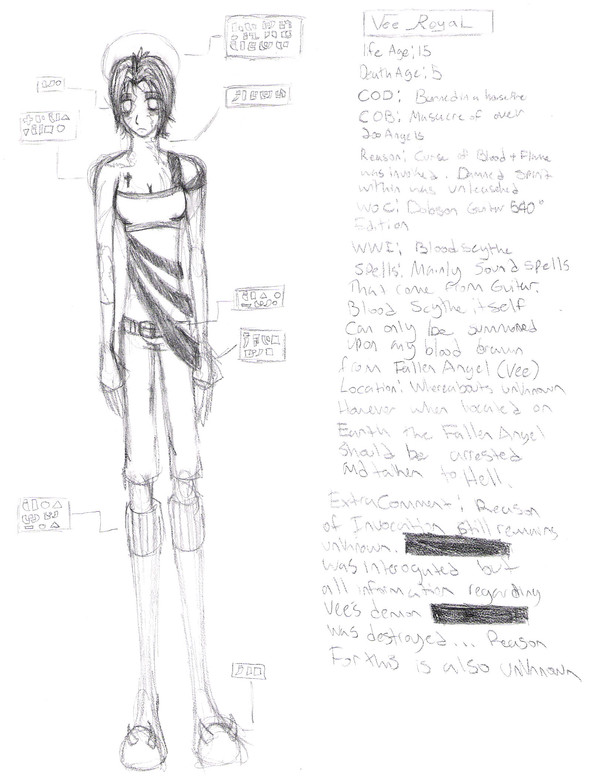 Vee Royal
life Age: 15
Death Age: 5
COD: Burned in a housefire
COB: Masacre of over
200 Angels
Reason: Curse of Blood + Flame
was involved. Damned Spirit
within was unleashed
WOC: Dobson Guitar 640"
Edition
WWI: Blood Scythe
Spells: Mainly Sound Spells
That come from Guitar.
Blood Scythe itself
Can only be summoned
upon any blood drawn
from Fallen Angel (Vee)
Location: Whereabouts unknown
However when located on
Earth the Fallen Angel
Should be arrested
and taken to Hell.
Extra Comment: Reason
of Invocation still remains
unknown.
was interogated but
all information regarding
Vee's demon
was destroyed... Reason
For this is also unknown